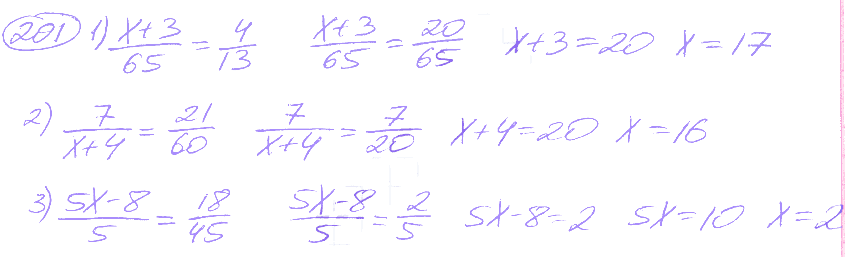 201 1) (x+3)/65 = 4/13 (x+3)/65 = 20/65 x+3=20 x=17
2) 7/(x+4) = 21/60 7/(x+4) = 7/20 x+4=20 x=16
3) (5x-8)/5 = 18/45 (5x-8)/5 = 2/5 5x-8=2 5x=10 x=2